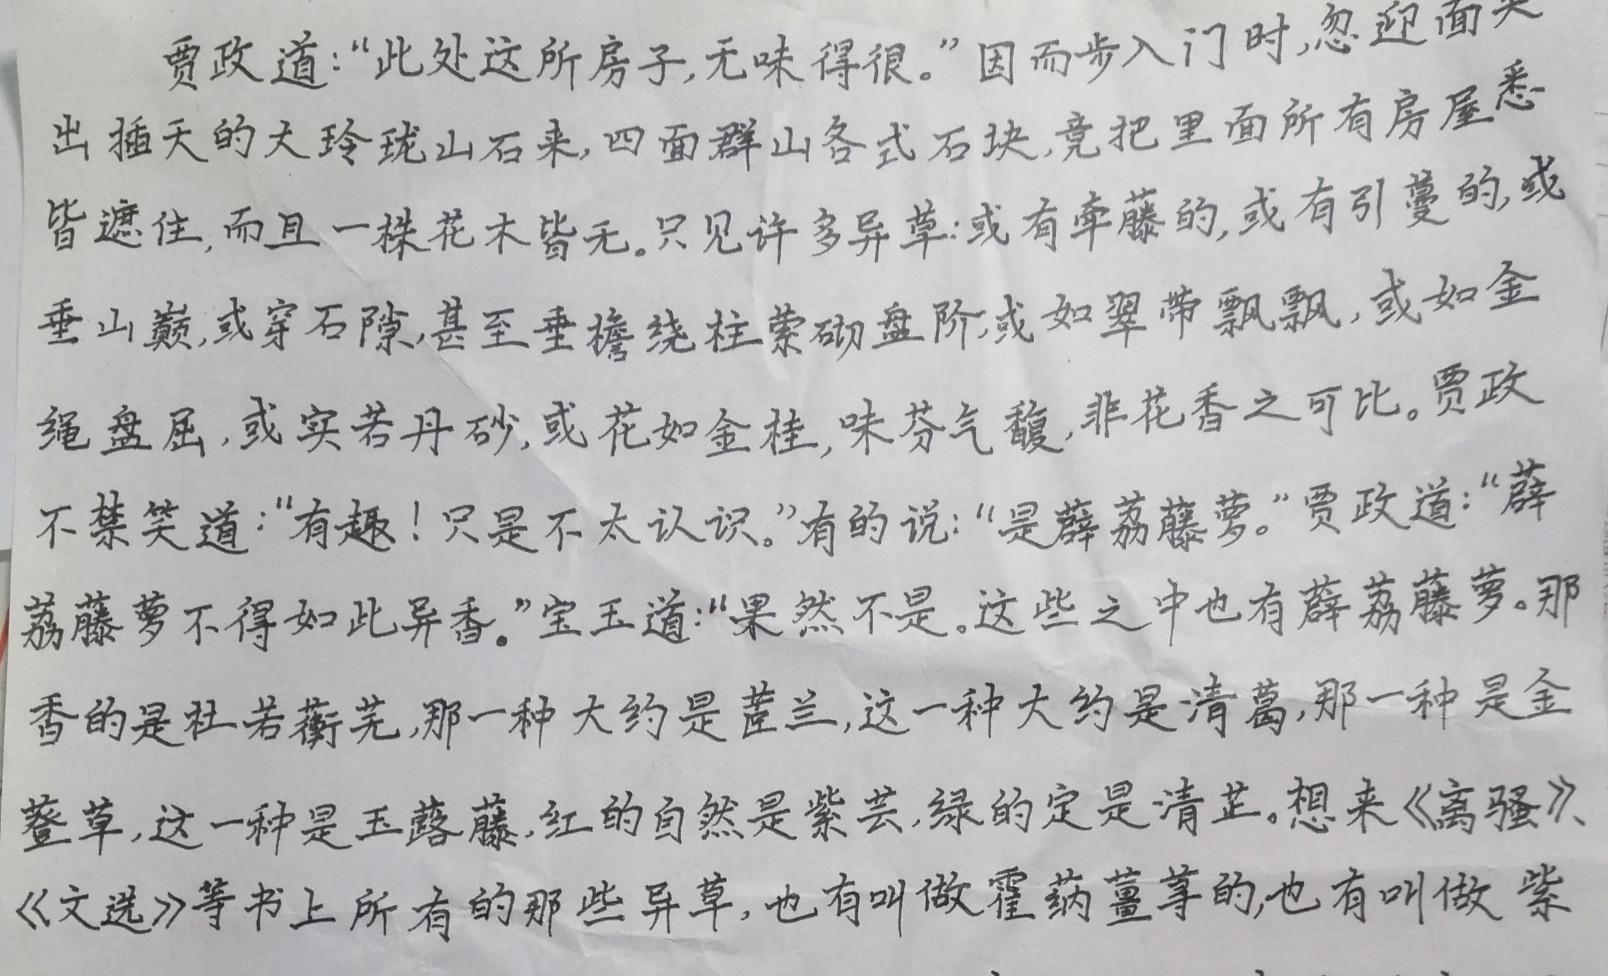 贾政道:“此处这所房子,无味得很。”因而步入门时,忽迎面突
出插天的大玲珑山石来,四面群山各式石块,竟把里面所有房屋悉
皆遮住,而且一株花木皆无。只见许多异草:或有牵藤的,或有引蔓的,或
垂山巅,或穿石隙,甚至垂檐绕柱萦砌盘阶,或如翠带飘飘,或如金
绳盘屈,或实若丹砂,或花如金桂,味芬气馥,非花香之可比。贾政
不禁笑道:“有趣!只是不太认识。”有的说:“是薜荔藤萝。”贾政道:“薜
荔藤萝不得如此异香。”宝玉道:“果然不是。这些之中也有薜荔藤萝。那
香的是杜若蘅芜,那一种大约是茝兰,这一种大约是清葛,那一种是金
䔲草,这一种是玉蕗藤,红的自然是紫芸,绿的定是清芷。想来《离骚》、
《文选》等书上所有的那些异草,也有叫做霍蒳薑荨的,也有叫做紫